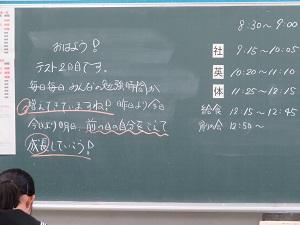 おはよう!
テスト2日目です。
毎日毎日、みんなの勉強時間が
増えてきていますね!昨日より今日
今日より明日、前の日の自分をこえて
成長していこう!
8:30~9:00
社 9:15~10:05
英 10:20~11:10
体 11:25~12:15
給食 12:15~12:45
帰りの会 12:50~